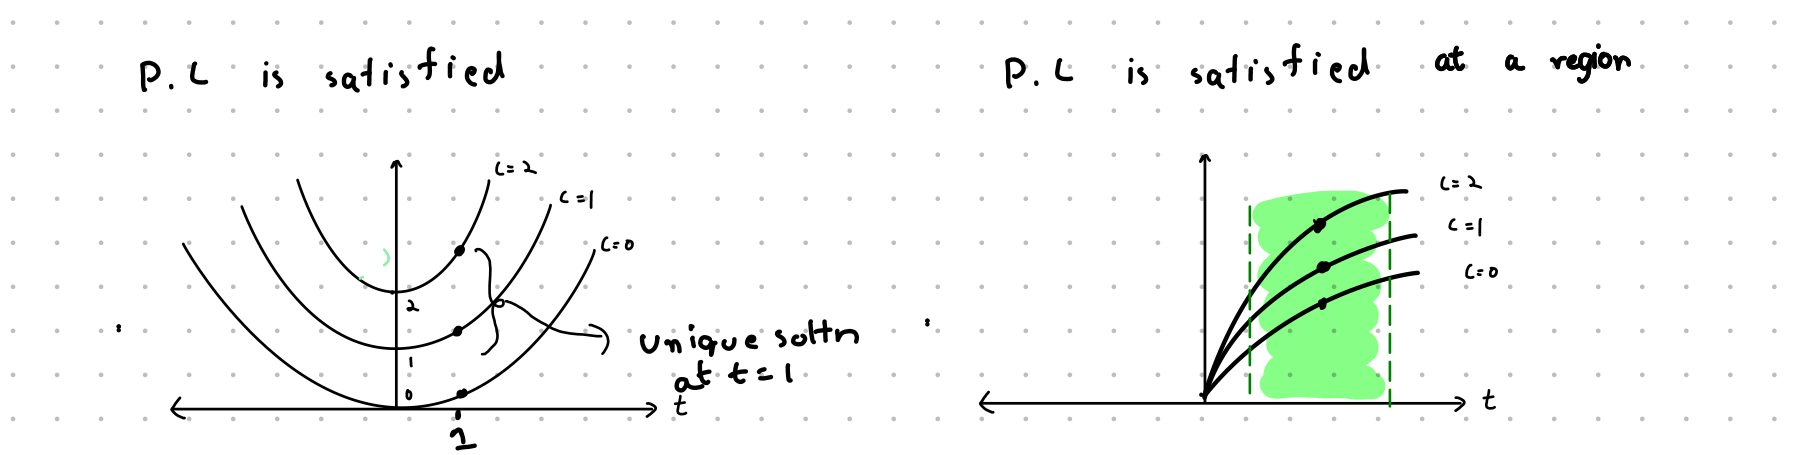 P.L is satisfied
c=2
c=1
c=0
2
1
0
unique soltn
at t=1
t
1
P.L is satisfied at a region
c=2
c=1
c=0
t